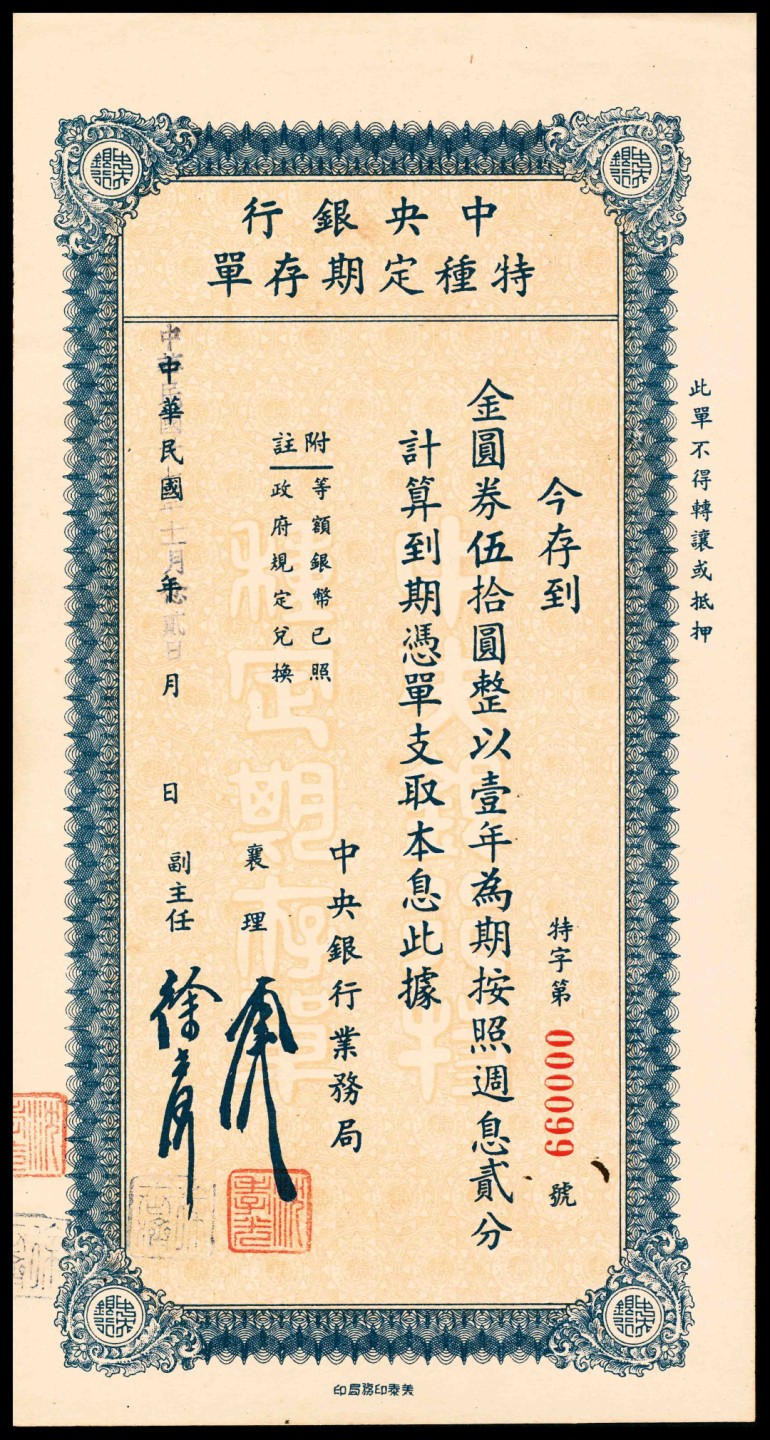 中央銀行
特種定期存單
此單不得轉讓或抵押
今存到
特字第 000099 號
金圓券伍拾圓整以壹年為期按照週息貳分
計算到期憑單支取本息此據
中央銀行業務局
附註
等額銀幣已照
政府規定兌換
襄理
中華民國 年 月 日
副主任
月念貳日
美泰印務局印